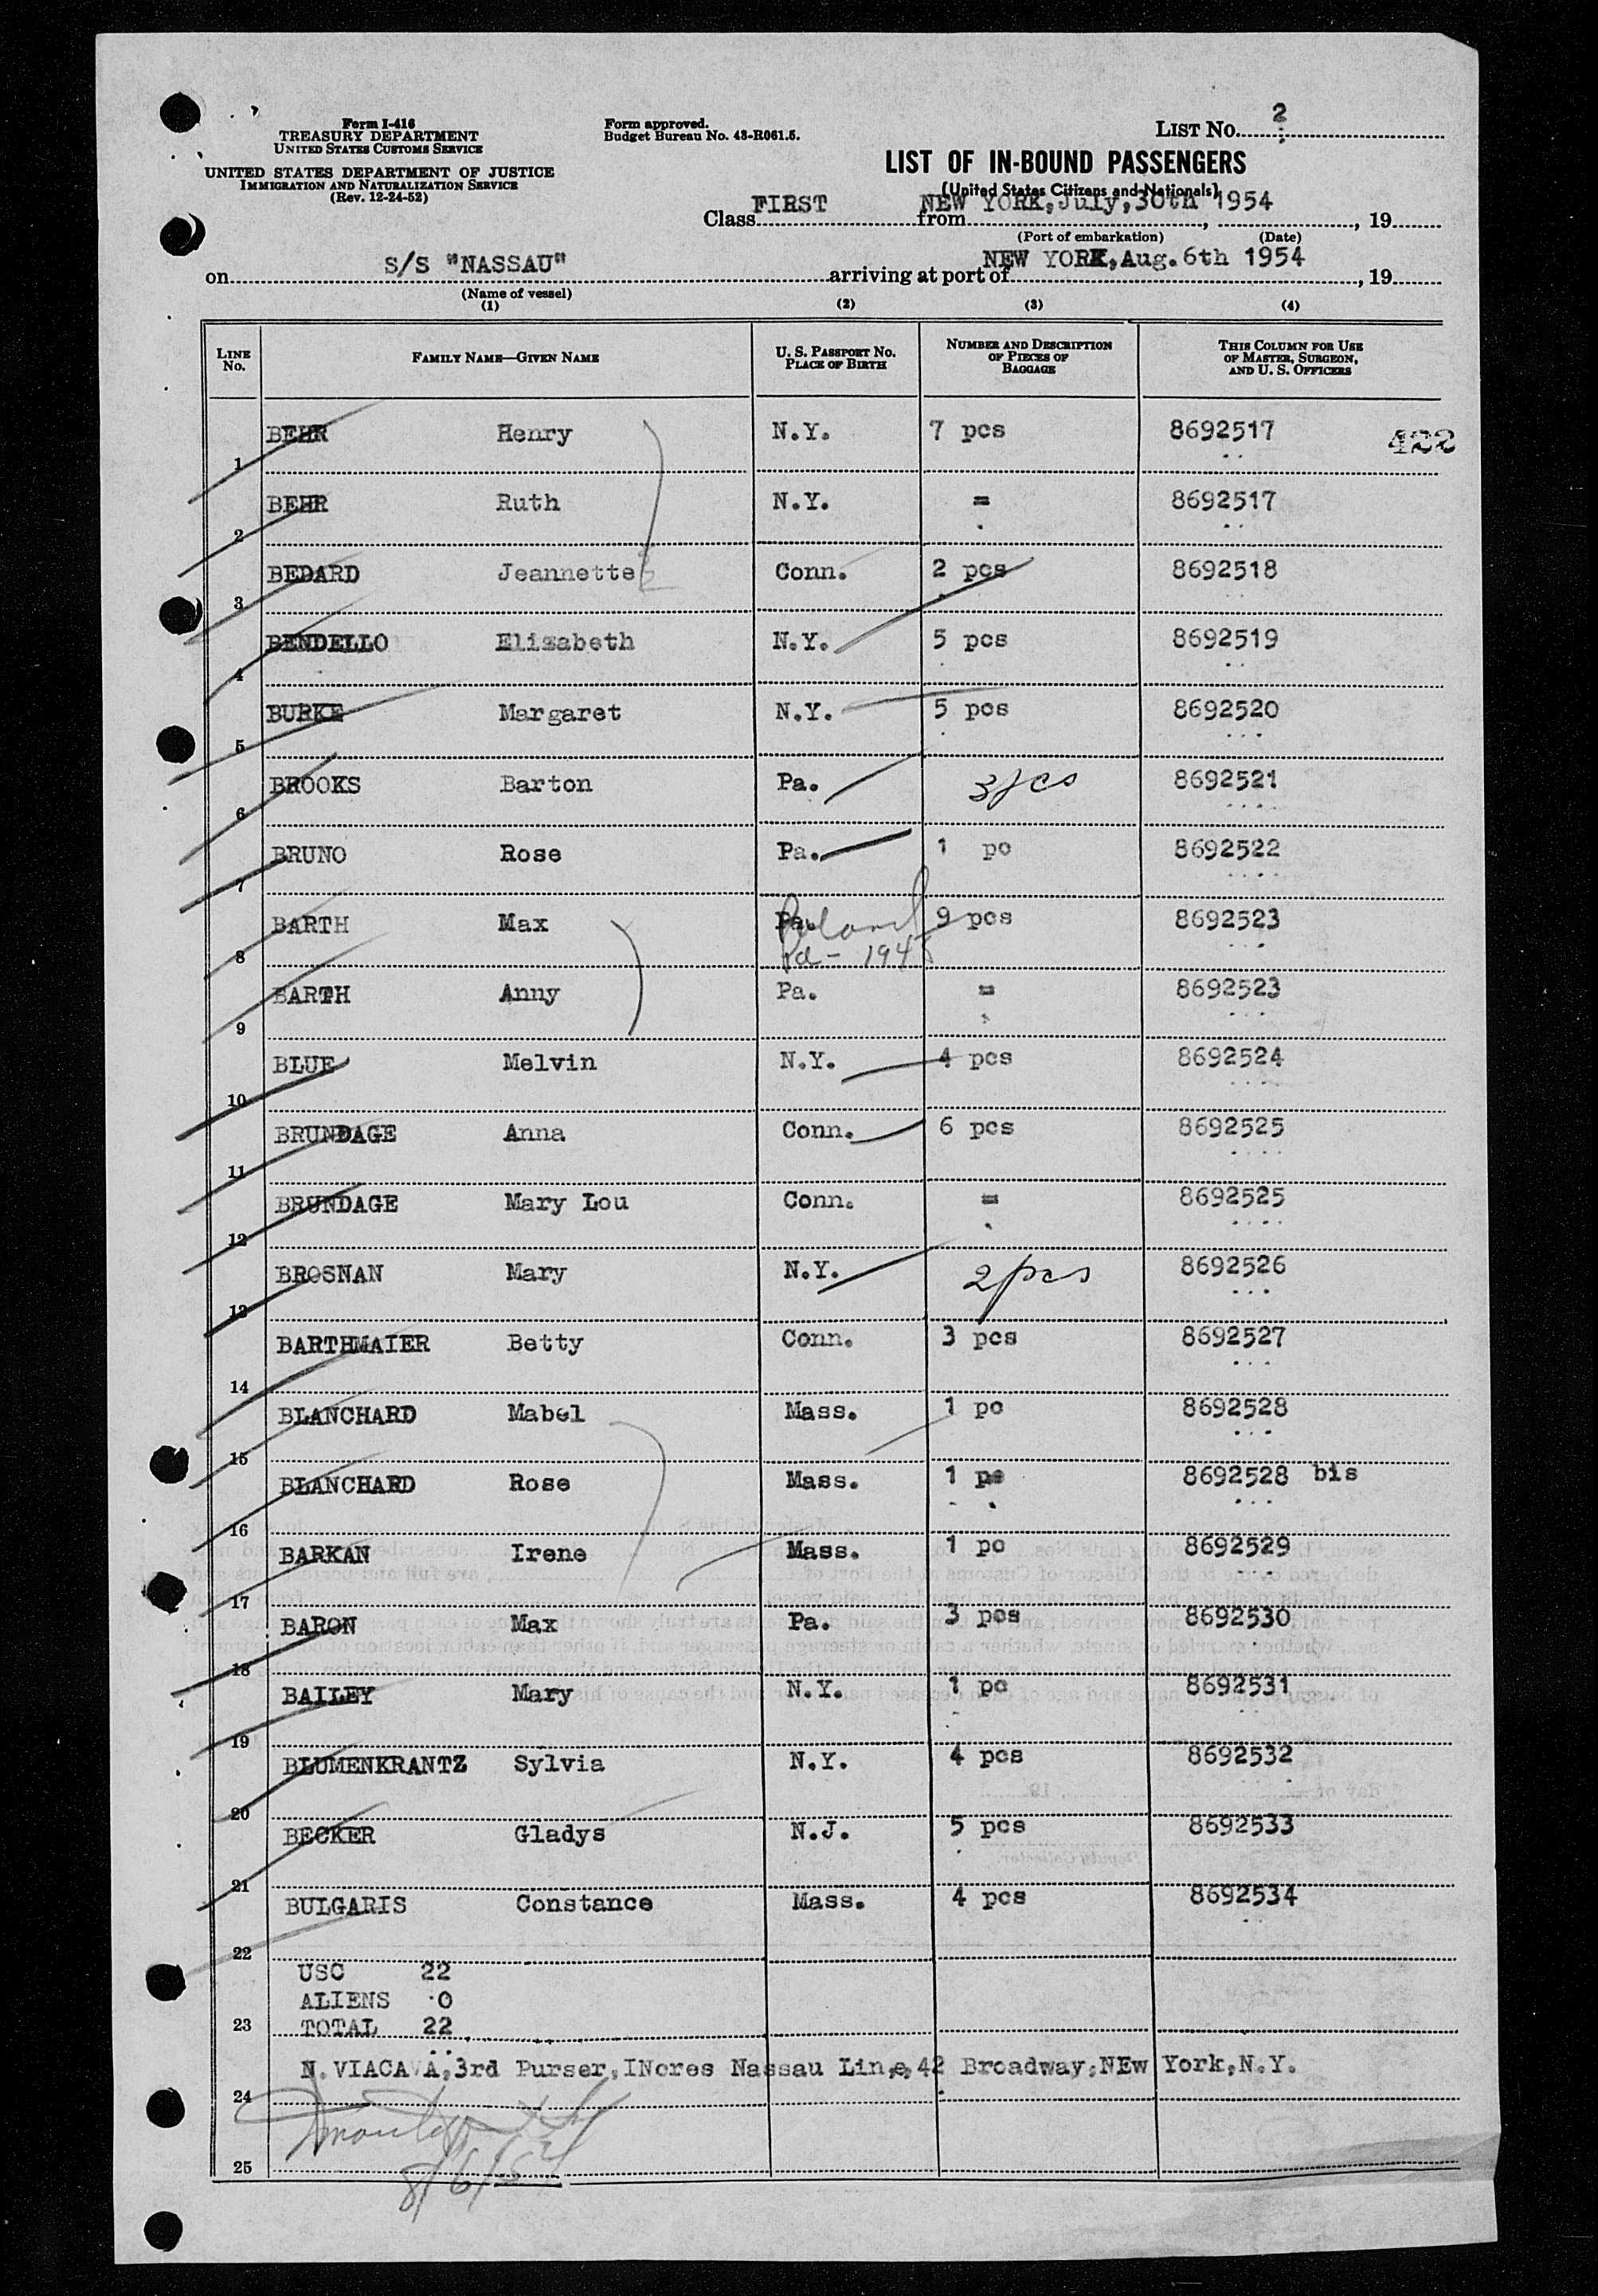 Form I-416
TREASURY DEPARTMENT
UNITED STATES CUSTOMS SERVICE
UNITED STATES DEPARTMENT OF JUSTICE
IMMIGRATION AND NATURALIZATION SERVICE
(Rev. 12-24-52)
Form approved.
Budget Bureau No. 43-R061.5.
LIST No. 2
LIST OF IN-BOUND PASSENGERS
(United States Citizens and Nationals)
Class FIRST from NEW YORK, July, 30th 1954, 19
(Port of embarkation) (Date)
on S/S "NASSAU" arriving at port of NEW YORK, Aug. 6th 1954, 19
(Name of vessel)
(1) (2) (3) (4)
LINE No. FAMILY NAME—GIVEN NAME U. S. PASSPORT No. PLACE OF BIRTH NUMBER AND DESCRIPTION OF PIECES OF BAGGAGE THIS COLUMN FOR USE OF MASTER, SURGEON, AND U. S. OFFICERS
1 BEHR Henry N.Y. 7 pcs 8692517 422
2 BEHR Ruth N.Y. = 8692517
3 BEDARD Jeannette Conn. 2 pcs 8692518
4 BENDELLO Elizabeth N.Y. 5 pcs 8692519
5 BURKE Margaret N.Y. 5 pcs 8692520
6 BROOKS Barton Pa. 3 pcs 8692521
7 BRUNO Rose Pa. 1 pc 8692522
8 BARTH Max Pa. Poland 9 pcs 8692523
9 BARTH Anny Pa. = 8692523
10 BLUE Melvin N.Y. 4 pcs 8692524
11 BRUNDAGE Anna Conn. 6 pcs 8692525
12 BRUNDAGE Mary Lou Conn. = 8692525
13 BROSNAN Mary N.Y. 2 pcs 8692526
14 BARTHMAIER Betty Conn. 3 pcs 8692527
15 BLANCHARD Mabel Mass. 1 pc 8692528
16 BLANCHARD Rose Mass. 1 pc 8692528 bis
17 BARKAN Irene Mass. 1 pc 8692529
18 BARON Max Pa. 3 pcs 8692530
19 BAILEY Mary N.Y. 1 pc 8692531
20 BLUMENKRANTZ Sylvia N.Y. 4 pcs 8692532
21 BECKER Gladys N.J. 5 pcs 8692533
22 BULGARIS Constance Mass. 4 pcs 8692534
USC 22
ALIENS 0
23 TOTAL 22
N. VIACAVA, 3rd Purser, INcres Nassau Line, 42 Broadway, NEw York, N.Y.
24
8/6/54
25